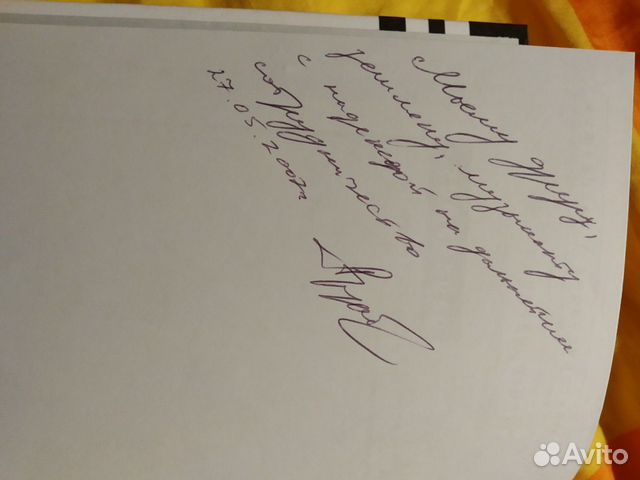 Моему другу,
земляку, музыканту
с надеждой на дальнейшее
сотрудничество
17.05.2007г
Avito